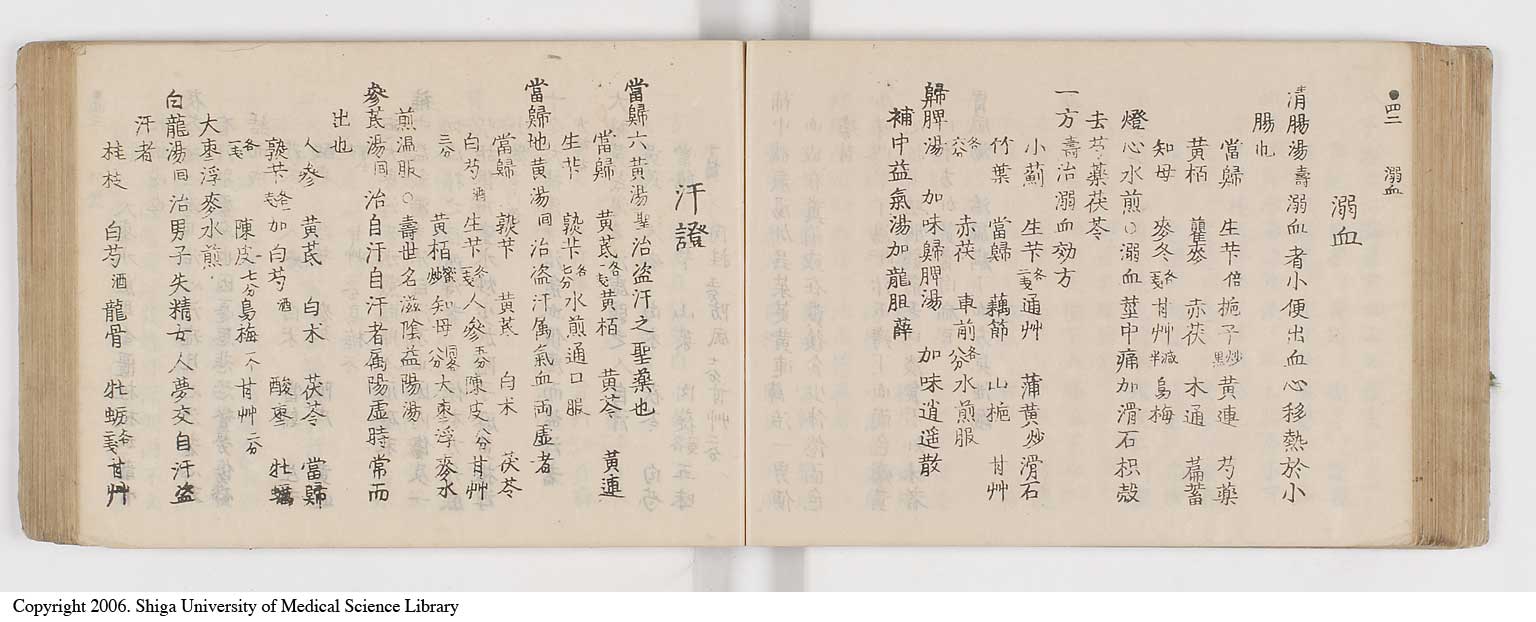 四二　溺血
溺血
清腸湯壽溺血者小便出血心移熱於小
腸也
當歸　生芐倍梔子炒黒黄連　芍藥
黄栢　瞿麥　赤茯　木通　萹蓄
知母　麥冬各一戔甘艸減半烏梅
燈心水煎○溺血莖中痛加滑石枳殻
去芍藥茯苓
一方壽治溺血効方
小薊　生芐各二戔通艸　蒲黄炒滑石
竹葉　當歸　藕節　山梔　甘艸
各六分　赤茯　車前各八分水煎服
歸脾湯　加味歸脾湯　加味逍遥散
補中益氣湯加龍胆　薢
汗證
當歸六黄湯聖治盗汗之聖藥也
當歸　黄芪各一戔黄栢　黄芩　黄連
生芐　熟芐各七分水煎通口服
當歸地黄湯回治盗汗属氣血両虚者
當歸　熟芐　黄芪　白朮　茯苓
白芍酒生芐各一戔人參五分陳皮八分甘艸
三分　黄栢蜜炒知母蜜炒大棗浮麥水
煎温服○壽世名滋陰益陽湯
參芪湯回治自汗自汗者属陽虚時常而
出也
人參　黄芪　白朮　茯苓　當歸
熟芐各一戔加白芍酒　酸棗　牡蠣
各一戔　陳皮七分烏梅一个甘艸二分
大棗浮麥水煎
白龍湯回治男子失精女人夢交自汗盗
汗者
桂枝　白芍酒龍骨　牡蛎各三戔甘艸
Copyright 2006. Shiga University of Medical Science Library